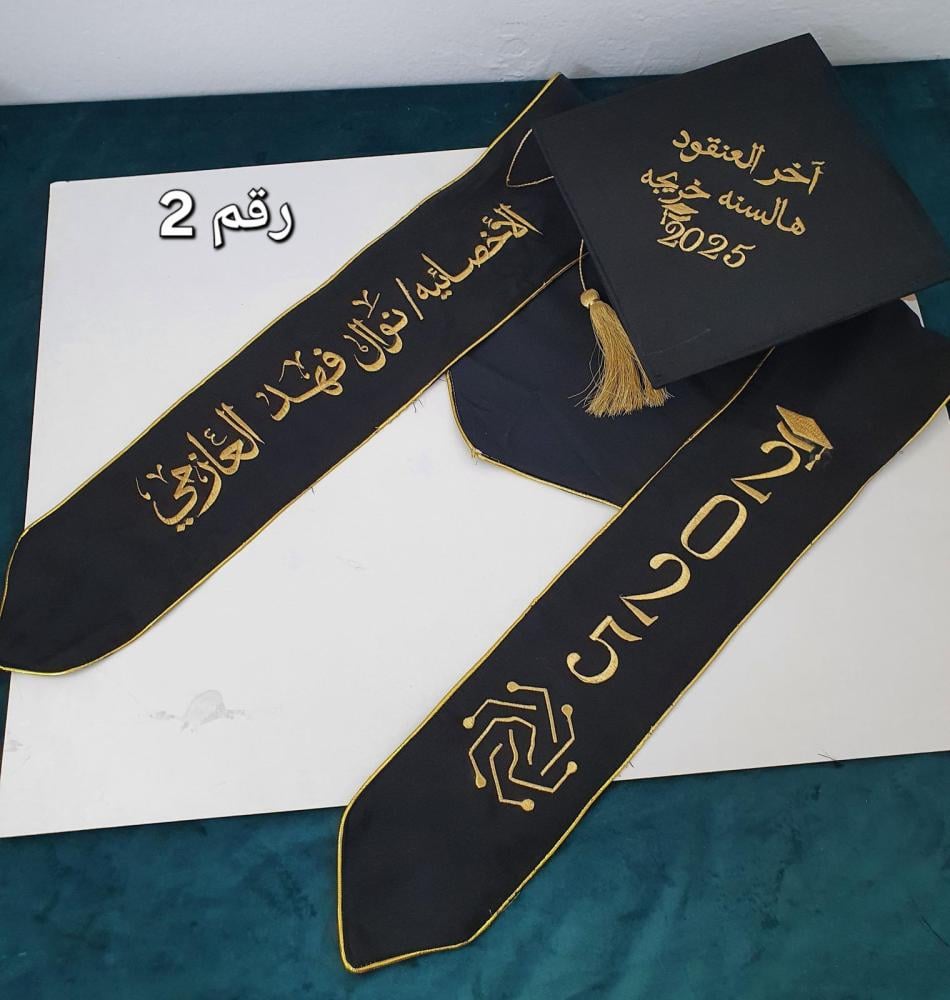 رقم 2
آخر العنقود
هالسنه خريجه
2025
الأخصائيه/نوال فهد العازمي
2025